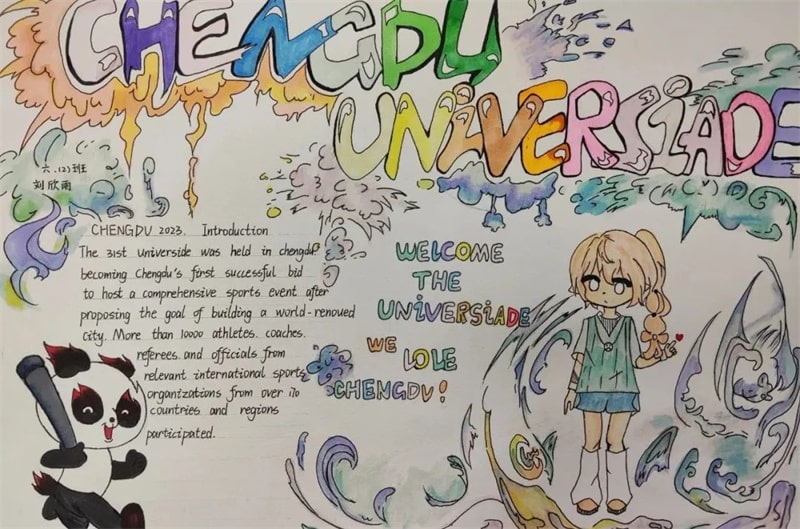 CHENGDU
UNIVERSIADE
六.(2)班
刘欣雨
CHENGDU 2023. Introduction
The 31st Universide was held in chengdu.
becoming Chengdu's first successful bid
to host a comprehensive sports event after
proposing the goal of building a world-renoued
city. More than 10000 athletes. coaches.
referees. and officials from
relevant international sports
organizations from over 170
countries and regions
participated.
WELCOME
THE
UNIVERSIADE
WE LOLE
CHENGDU!